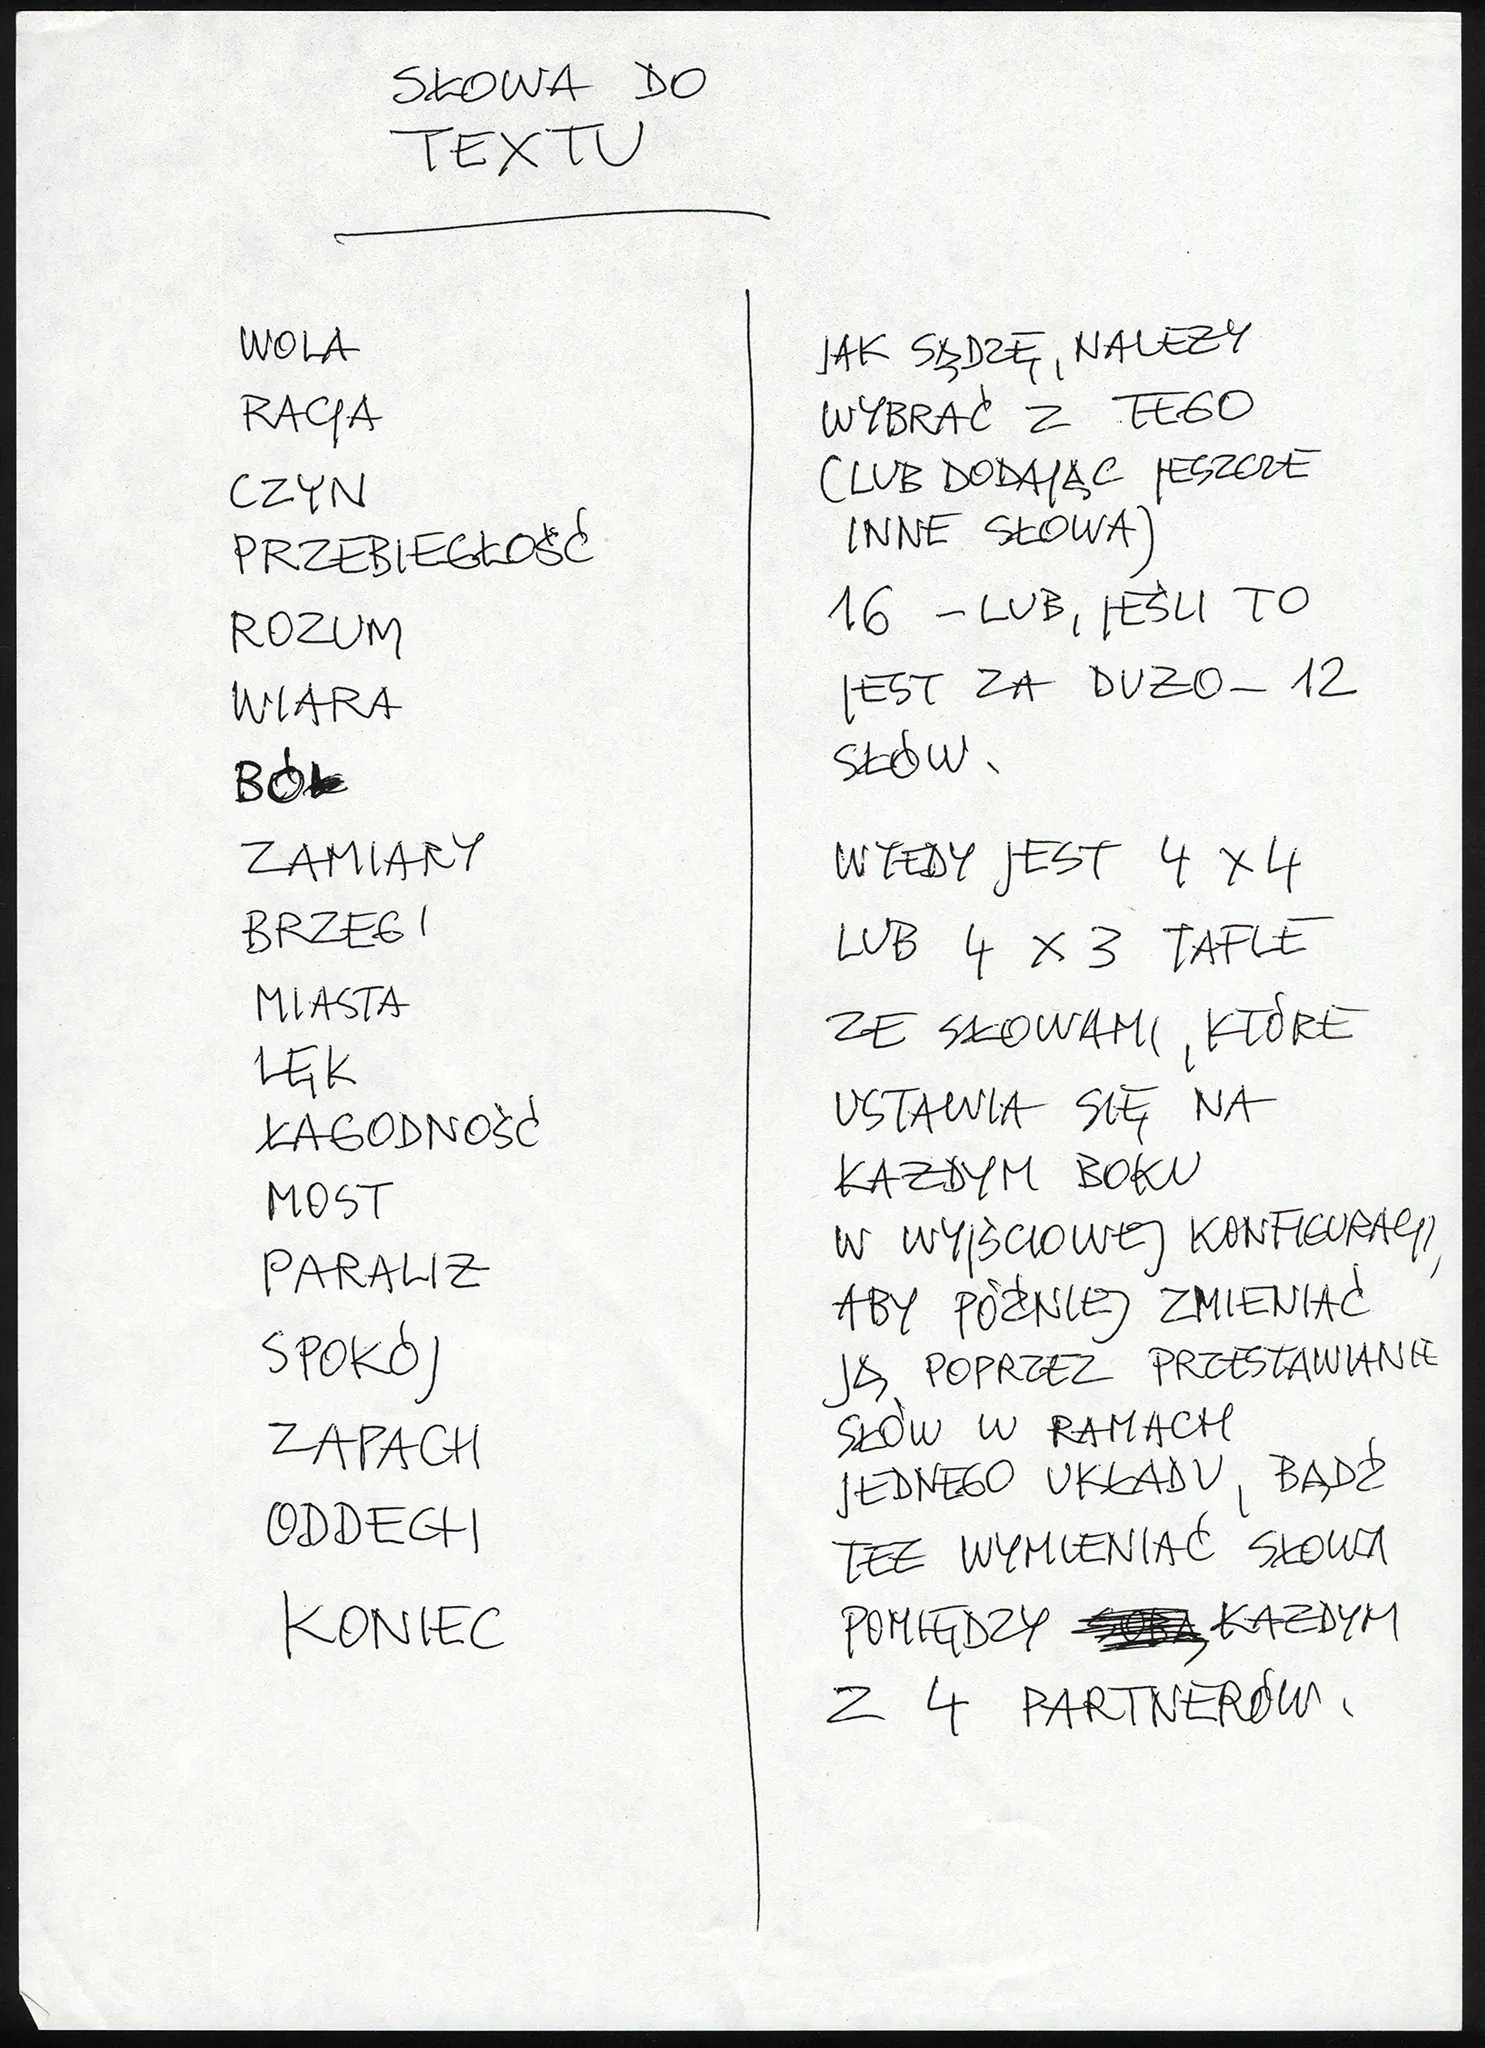 SŁOWA DO
TEXTU
WOLA
RACJA
CZYN
PRZEBIEGŁOŚĆ
ROZUM
WIARA
BÓL
ZAMIARY
BRZEGI
MIASTA
LĘK
ŁAGODNOŚĆ
MOST
PARALIZ
SPOKÓJ
ZAPACH
ODDECH
KONIEC
JAK SĄDZĘ, NALEZY
WYBRAĆ Z TEGO
(LUB DODAJĄC JESZCZE
INNE SŁOWA)
16 – LUB, JEŚLI TO
JEST ZA DUZO – 12
SŁÓW.
WTEDY JEST 4 X 4
LUB 4 X 3 TAFLE
ZE SŁOWAMI, KTÓRE
USTAWIA SIĘ NA
KAZDYM BOKU
W WYJŚCIOWEJ KONFIGURACJI,
ABY PÓŹNIEJ ZMIENIAĆ
JĄ POPRZEZ PRZESTAWIANIE
SŁÓW W RAMACH
JEDNEGO UKŁADU, BĄDŹ
TEZ WYMIENIAĆ SŁOWA
POMIĘDZY SOBĄ KAZDYM
Z 4 PARTNERÓW.